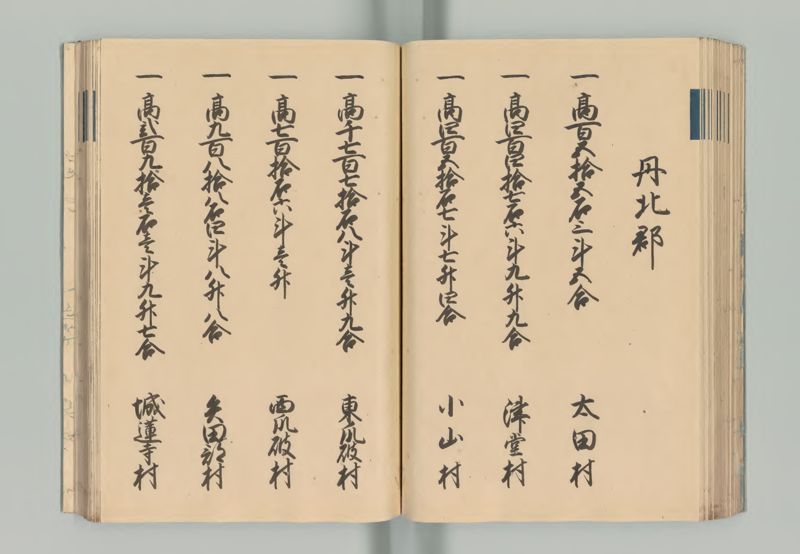 丹北郡
一 高百五拾五石三斗五合 太田村
一 高四百四拾七石六斗九升九合 津堂村
一 高四百五拾石七斗七升四合 小山村
一 高千七百七拾石八斗壱升九合 東瓜破村
一 高七百拾石六斗壱升 西瓜破村
一 高九百八拾八石四斗八升八合 矢田部村
一 高弐百九拾壱石壱斗九升七合 城蓮寺村